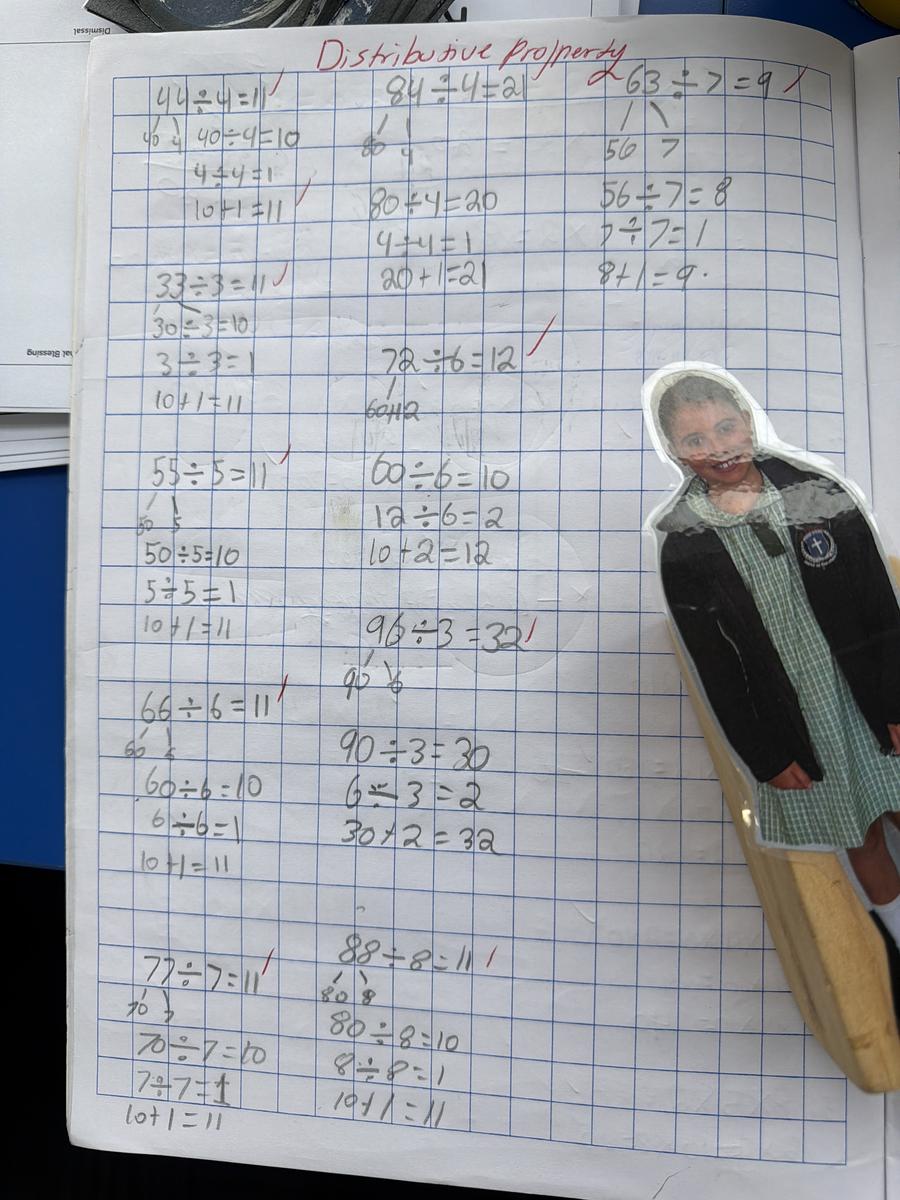 Dismissal
hat Blessing
Distributive Property
44÷4=11
40 4 40÷4=10
4÷4=1
10+1=11
33÷3=11
30÷3=10
3÷3=1
10+1=11
55÷5=11
50 5
50÷5=10
5÷5=1
10+1=11
66÷6=11
60 6
60÷6=10
6÷6=1
10+1=11
77÷7=11
70 7
70÷7=10
7÷7=1
10+1=11
84÷4=21
80 4
80÷4=20
4÷4=1
20+1=21
72÷6=12
60+12
60÷6=10
12÷6=2
10+2=12
96÷3=32
90 6
90÷3=30
6÷3=2
30+2=32
88÷8=11
80 8
80÷8=10
8÷8=1
10+1=11
63÷7=9
56 7
56÷7=8
7÷7=1
8+1=9.